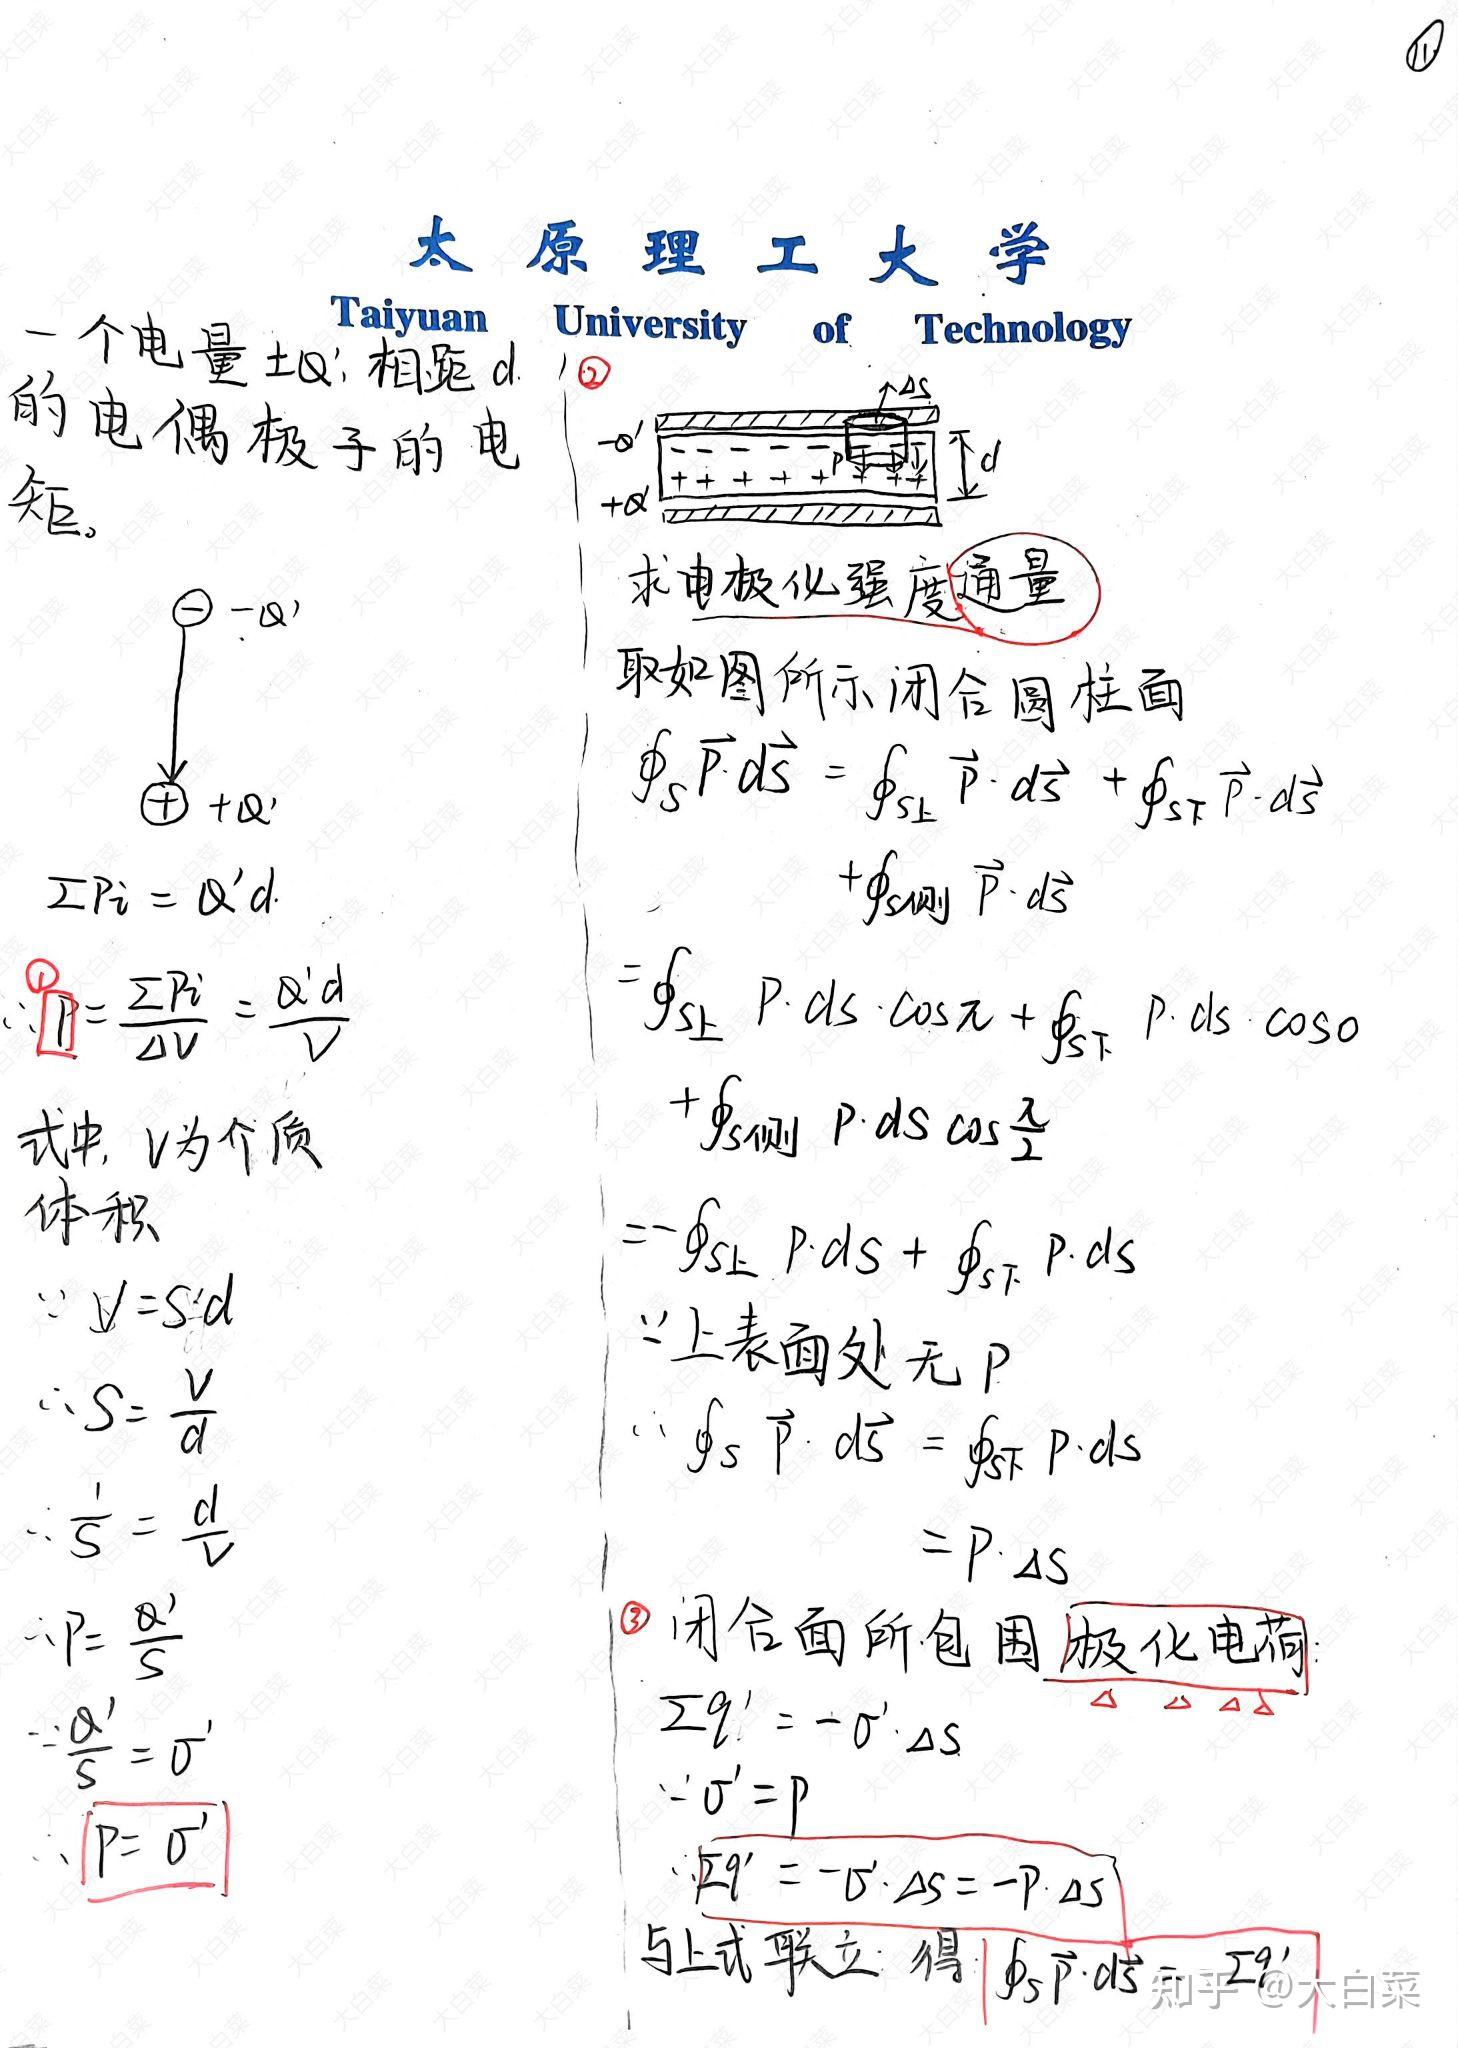 11
太原理工大学
Taiyuan University of Technology
一个电量±Q',相距d
的电偶极子的电
矩。
-Q'
+Q'
ΣPi = Q'd
①
∴ P = ΣPi/ΔV = Q'd/V
式中, V为介质
体积
∵ V=S·d
∴ S = V/d
∴ 1/S = d/V
∴ P = Q'/S
∵ Q'/S = σ'
∴ P = σ'
②
ΔS
-Q'
- - - - - -
P
d
+ + + + + + + +
+Q'
求电极化强度通量
取如图所示闭合圆柱面
∮S P⃗·dS⃗ = ∮S上 P⃗·dS⃗ + ∮S下 P⃗·dS⃗
+∮S侧 P⃗·dS⃗
= ∮S上 P·dS·cosπ + ∮S下 P·dS·cos0
+ ∮S侧 P·dS cos π/2
= -∮S上 P·dS + ∮S下 P·dS
∵ 上表面处无P
∴ ∮S P⃗·dS⃗ = ∮S下 P·dS
= P·ΔS
③ 闭合面所包围极化电荷:
Σq' = -σ'·ΔS
∵ σ' = P
∴ Σq' = -σ'·ΔS = -P·ΔS
与上式联立 得 ∮S P⃗·dS⃗ = - Σq'
知乎 @大白菜